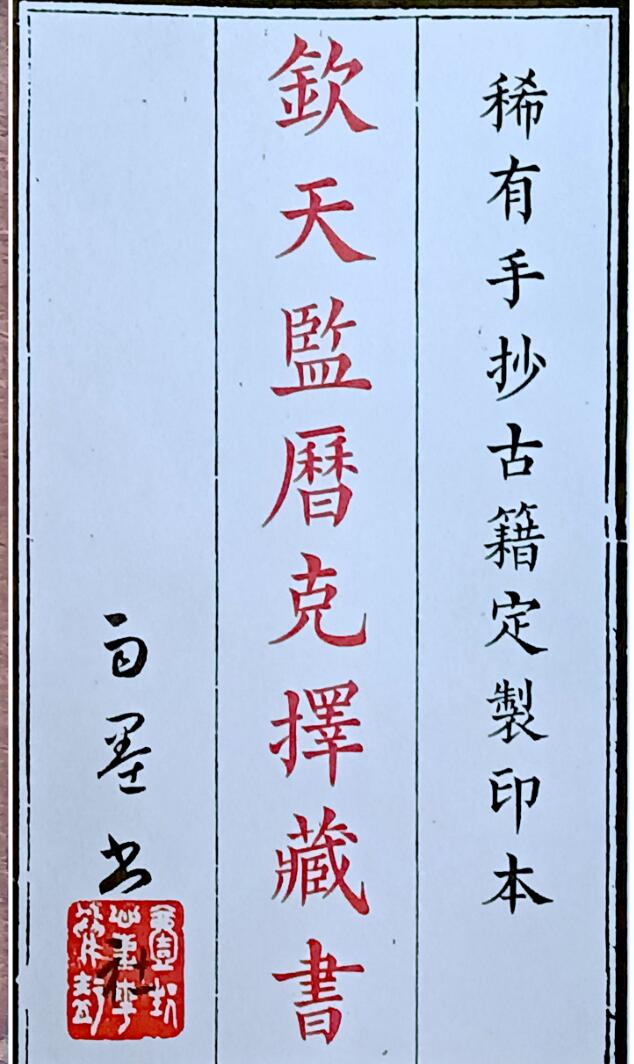 稀有手抄古籍定製印本
欽天監曆克擇藏書
白墨书社